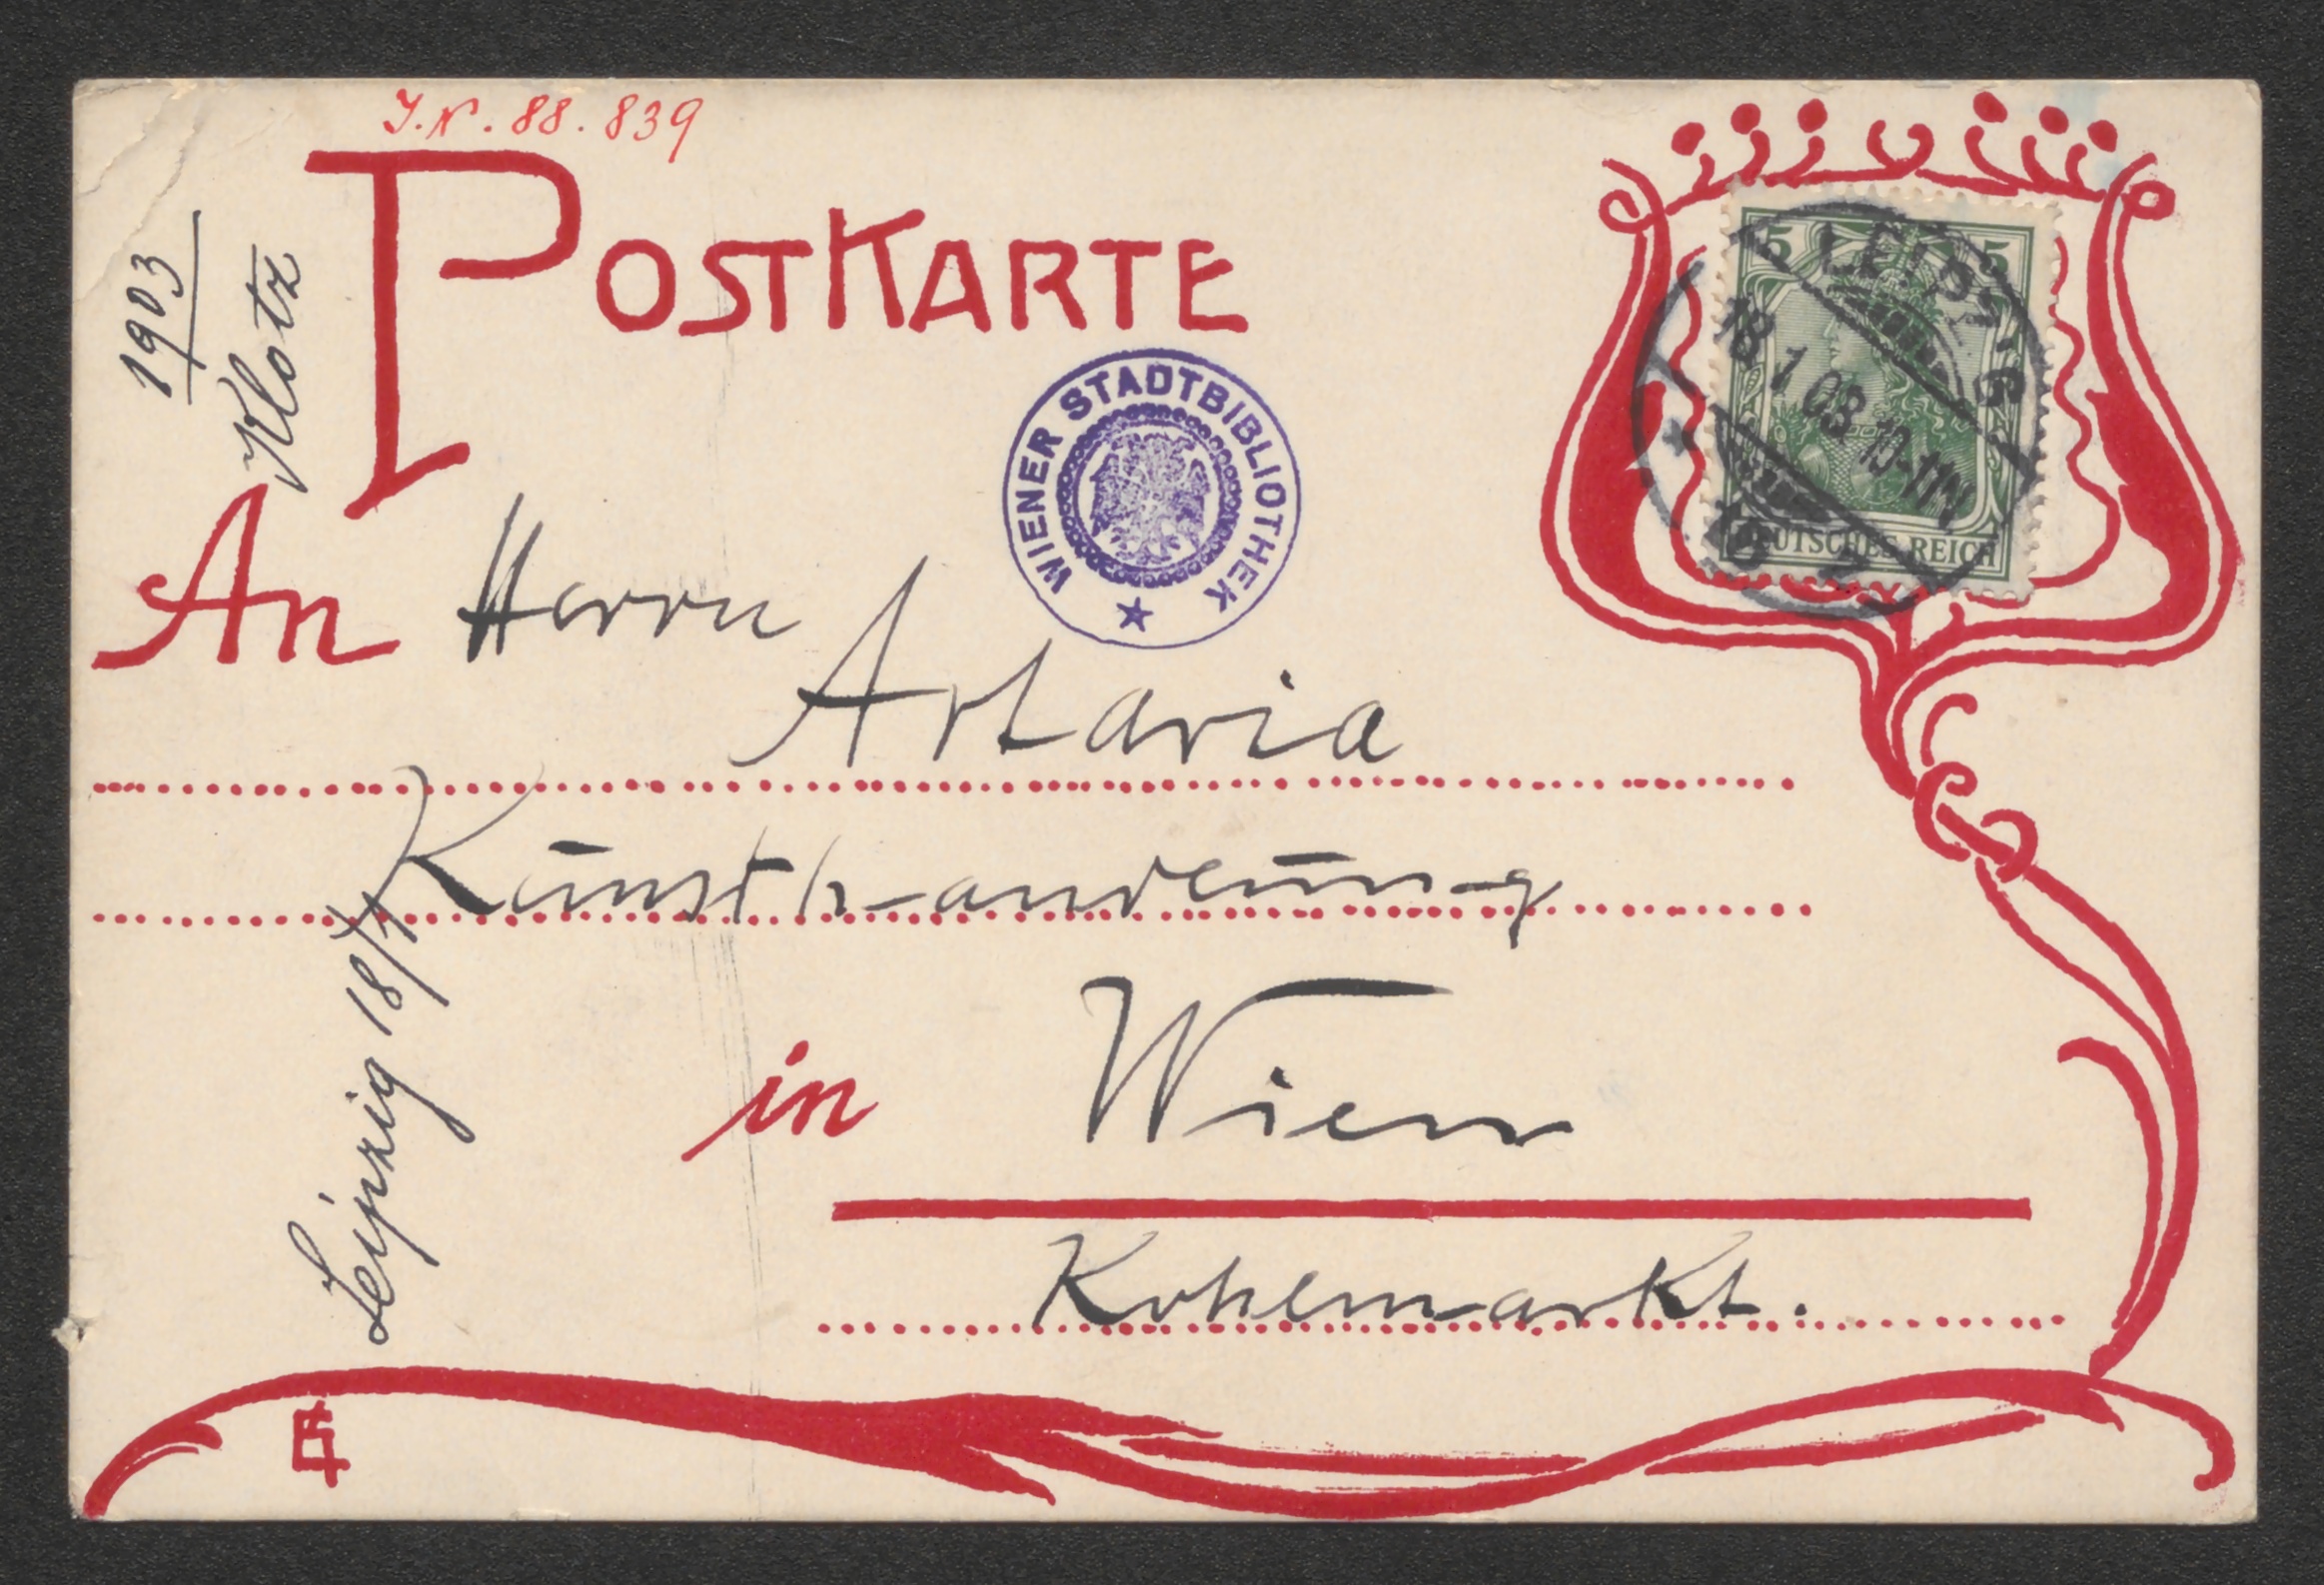 J.N. 88.839
1903
Klotz
POSTKARTE
WIENER STADTBIBLIOTHEK
5 5
LEIPZIG
18 1 03 10-11N
DEUTSCHES REICH
An Herrn
Artaria
Kunsthandlung
Leipzig 18/1
in Wien
Kohlmarkt.